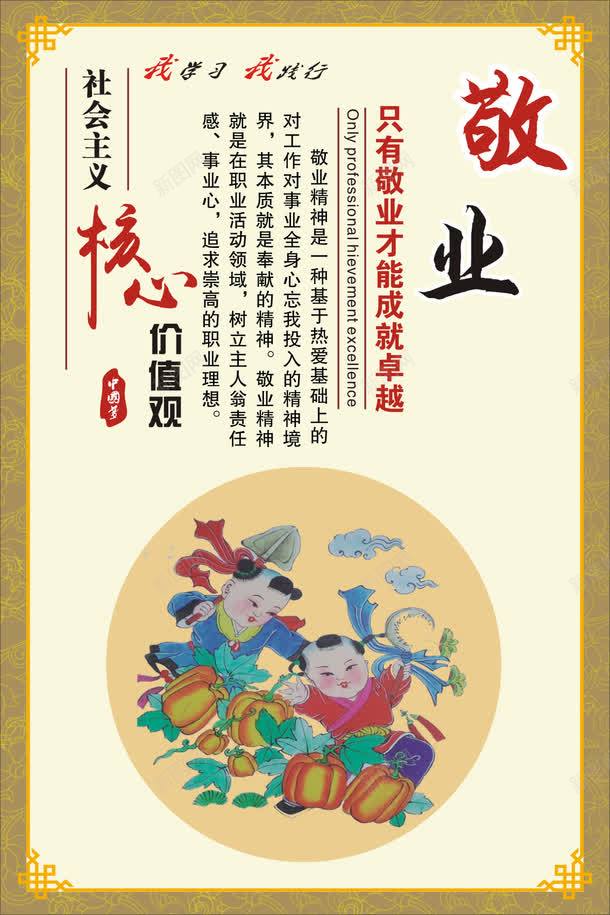 敬业
只有敬业才能成就卓越
Only professional hievement excellence
敬业精神是一种基于热爱基础上的
对工作对事业全身心忘我投入的精神境
界，其本质就是奉献的精神。敬业精神
就是在职业活动领域，树立主人翁责任
感、事业心，追求崇高的职业理想。
我学习 我践行
社会主义
核心
价值观
中国梦